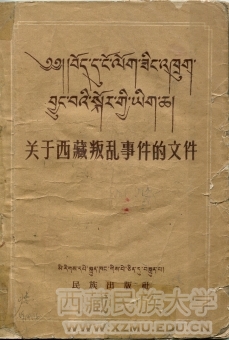 ༄༅།།བོད་དུ་ངོ་ལོག་ཟིང་འཁྲུག་
བྱུང་བའི་སྐོར་གྱི་ཡིག་ཆ།
关于西藏叛乱事件的文件
མི་རིགས་དཔེ་སྐྲུན་ཁང་གིས་པེ་ཅིན་དུ་བསྐྲུན་པ།
民族出版社
西藏民族大学
WWW.XZMU.EDU.CN